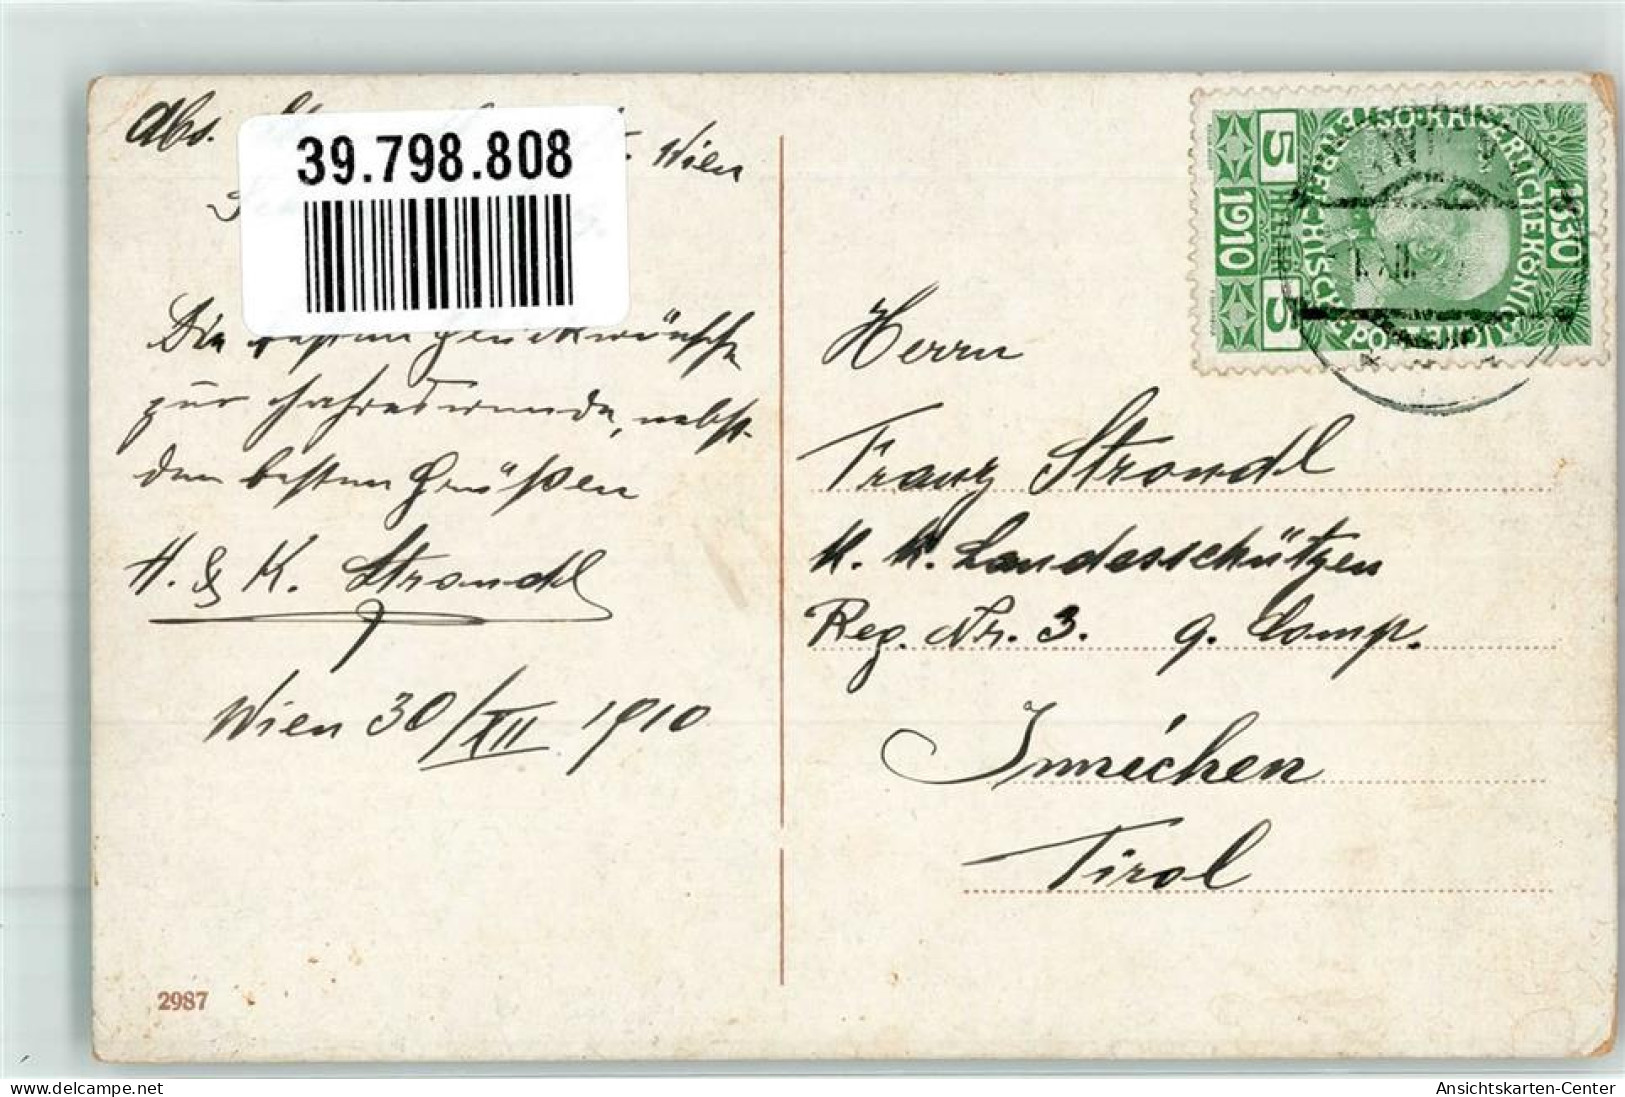 Abs.
Wien
39.798.808
Die besten Glückwünsche
zur Jahreswende, nebst
den besten Grüßen
H. & K. Strondl
Wien 30/XII 1910
2987
5 HELLER 5
1910
1830
Herrn
Franz Strondl
K. K. Landesschützen
Reg. Nr. 3. 9. Comp.
Innichen
Tirol
delcampe.net
Ansichtskarten-Center